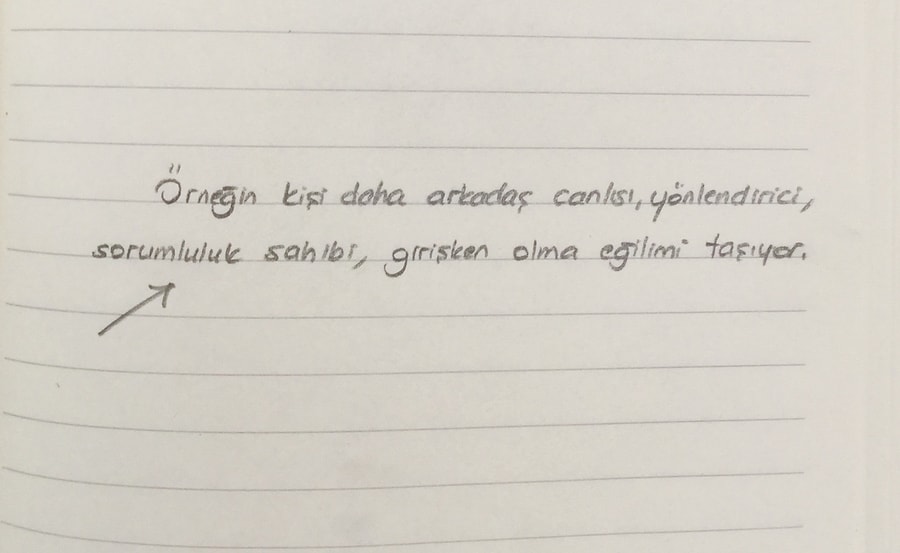 Örneğin kişi daha arkadaş canlısı, yönlendirici,
sorumluluk sahibi, girişken olma eğilimi taşıyor.